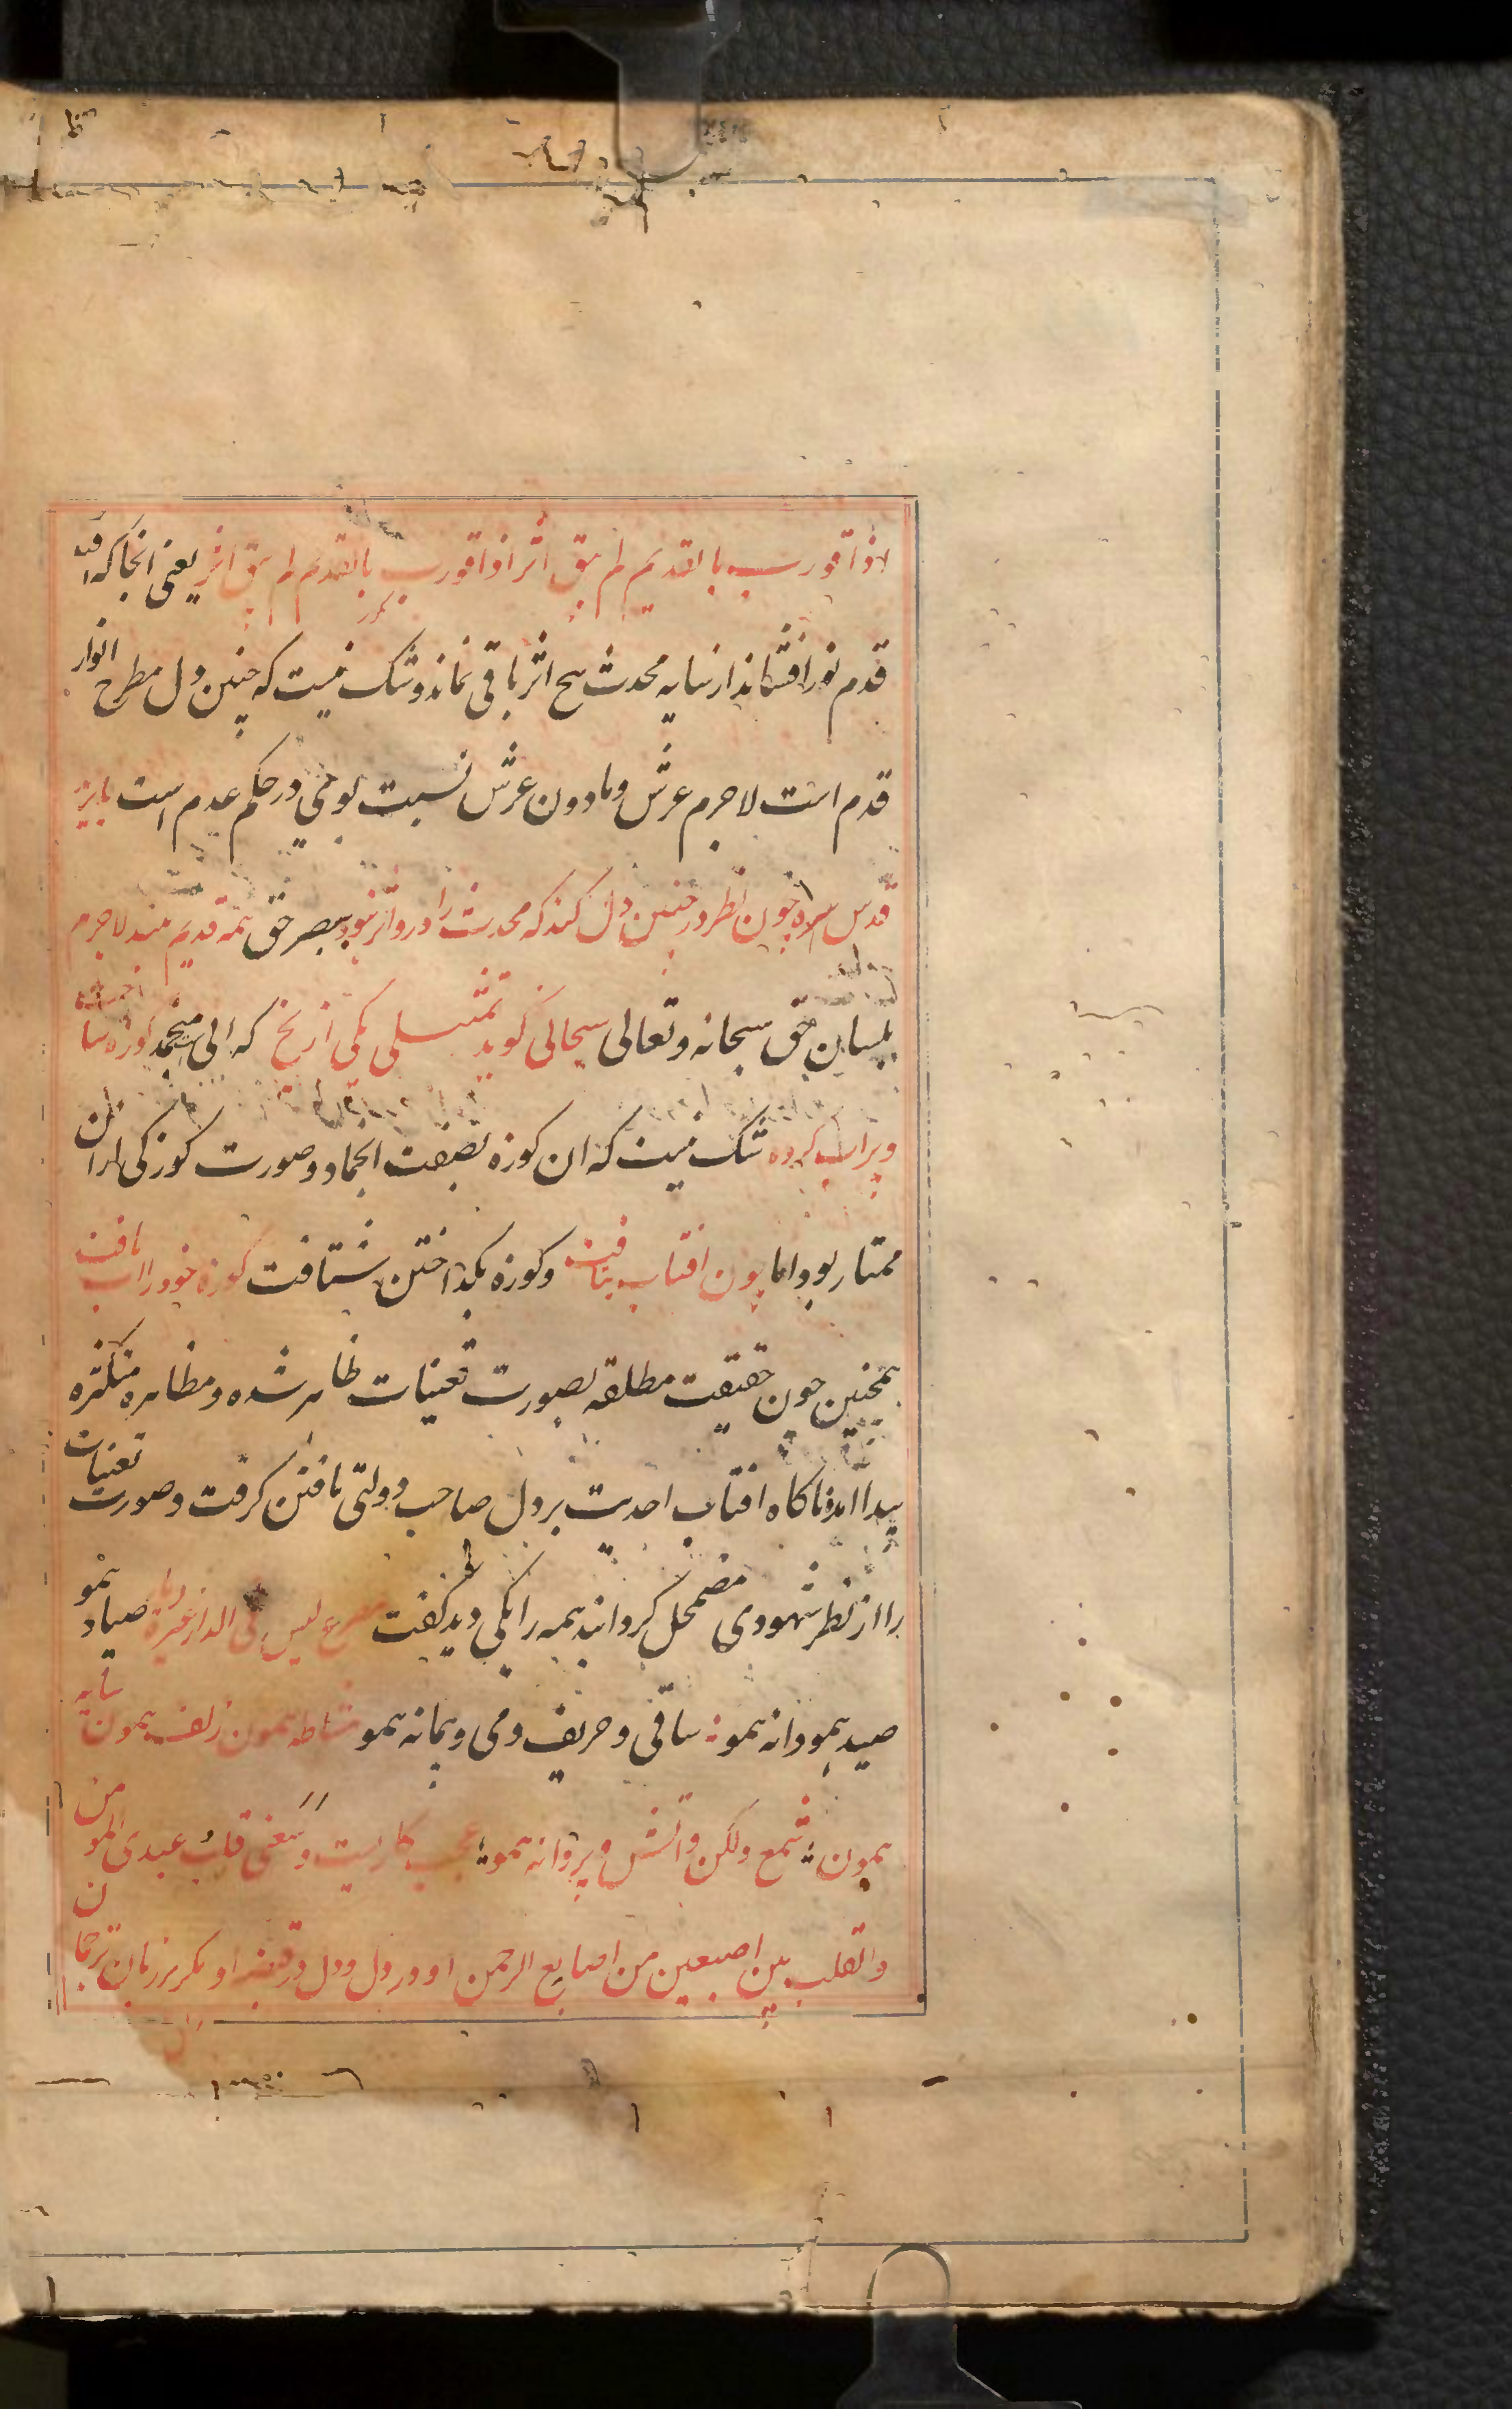 اذا قورب بالقدیم لم یبق اثر اذا قورب بالقدیم لم یبق اثر یعنی انجا که افتاب
قدم نور افشاند از سایه محدث هیچ اثر باقی نماند و شک نیست که چنین دل مطرح انوار
قدم است لاجرم عرش و مادون عرش نسبت بوی در حکم عدم است بایزید
قدس سره چون نظر در چنین دل کند که محدث را درو اثر نبود ببصر حق همه قدیم بیند لاجرم
بلسان حق سبحانه و تعالی سبحانی گوید تمثیلی یکی از یخ که ابی منجمد کوزه ساخته
و پراب کرده شک نیست که ان کوزه بصفت انجماد و صورت کوزکی از ان
ممتاز بود اما چون افتاب بتافت و کوزه بکداختن شتافت کوزه خود را اب یافت
همچنین چون حقیقت مطلقه بصورت تعینات ظاهر شده و مظاهره متکثره
پیدا امد ناکاه افتاب احدیت بر دل صاحب دولتی تافتن کرفت و صورت تعینات
را از نظر شهودی مضمحل کرداند همه را یکی دید کفت مصرع لیس فی الدار غیره دیار صیاد همو
صید همو دانه همو ساقی و حریف و می و پیمانه همو مشاطه همون زلف همون شانه
همون شمع و لکن و اتش و پروانه همو عجب کاریست وسعنی قلب عبدی المومن
والقلب بین اصبعین من اصابع الرحمن او در دل و دل در قبضه او مکر بر زبان ترجمان